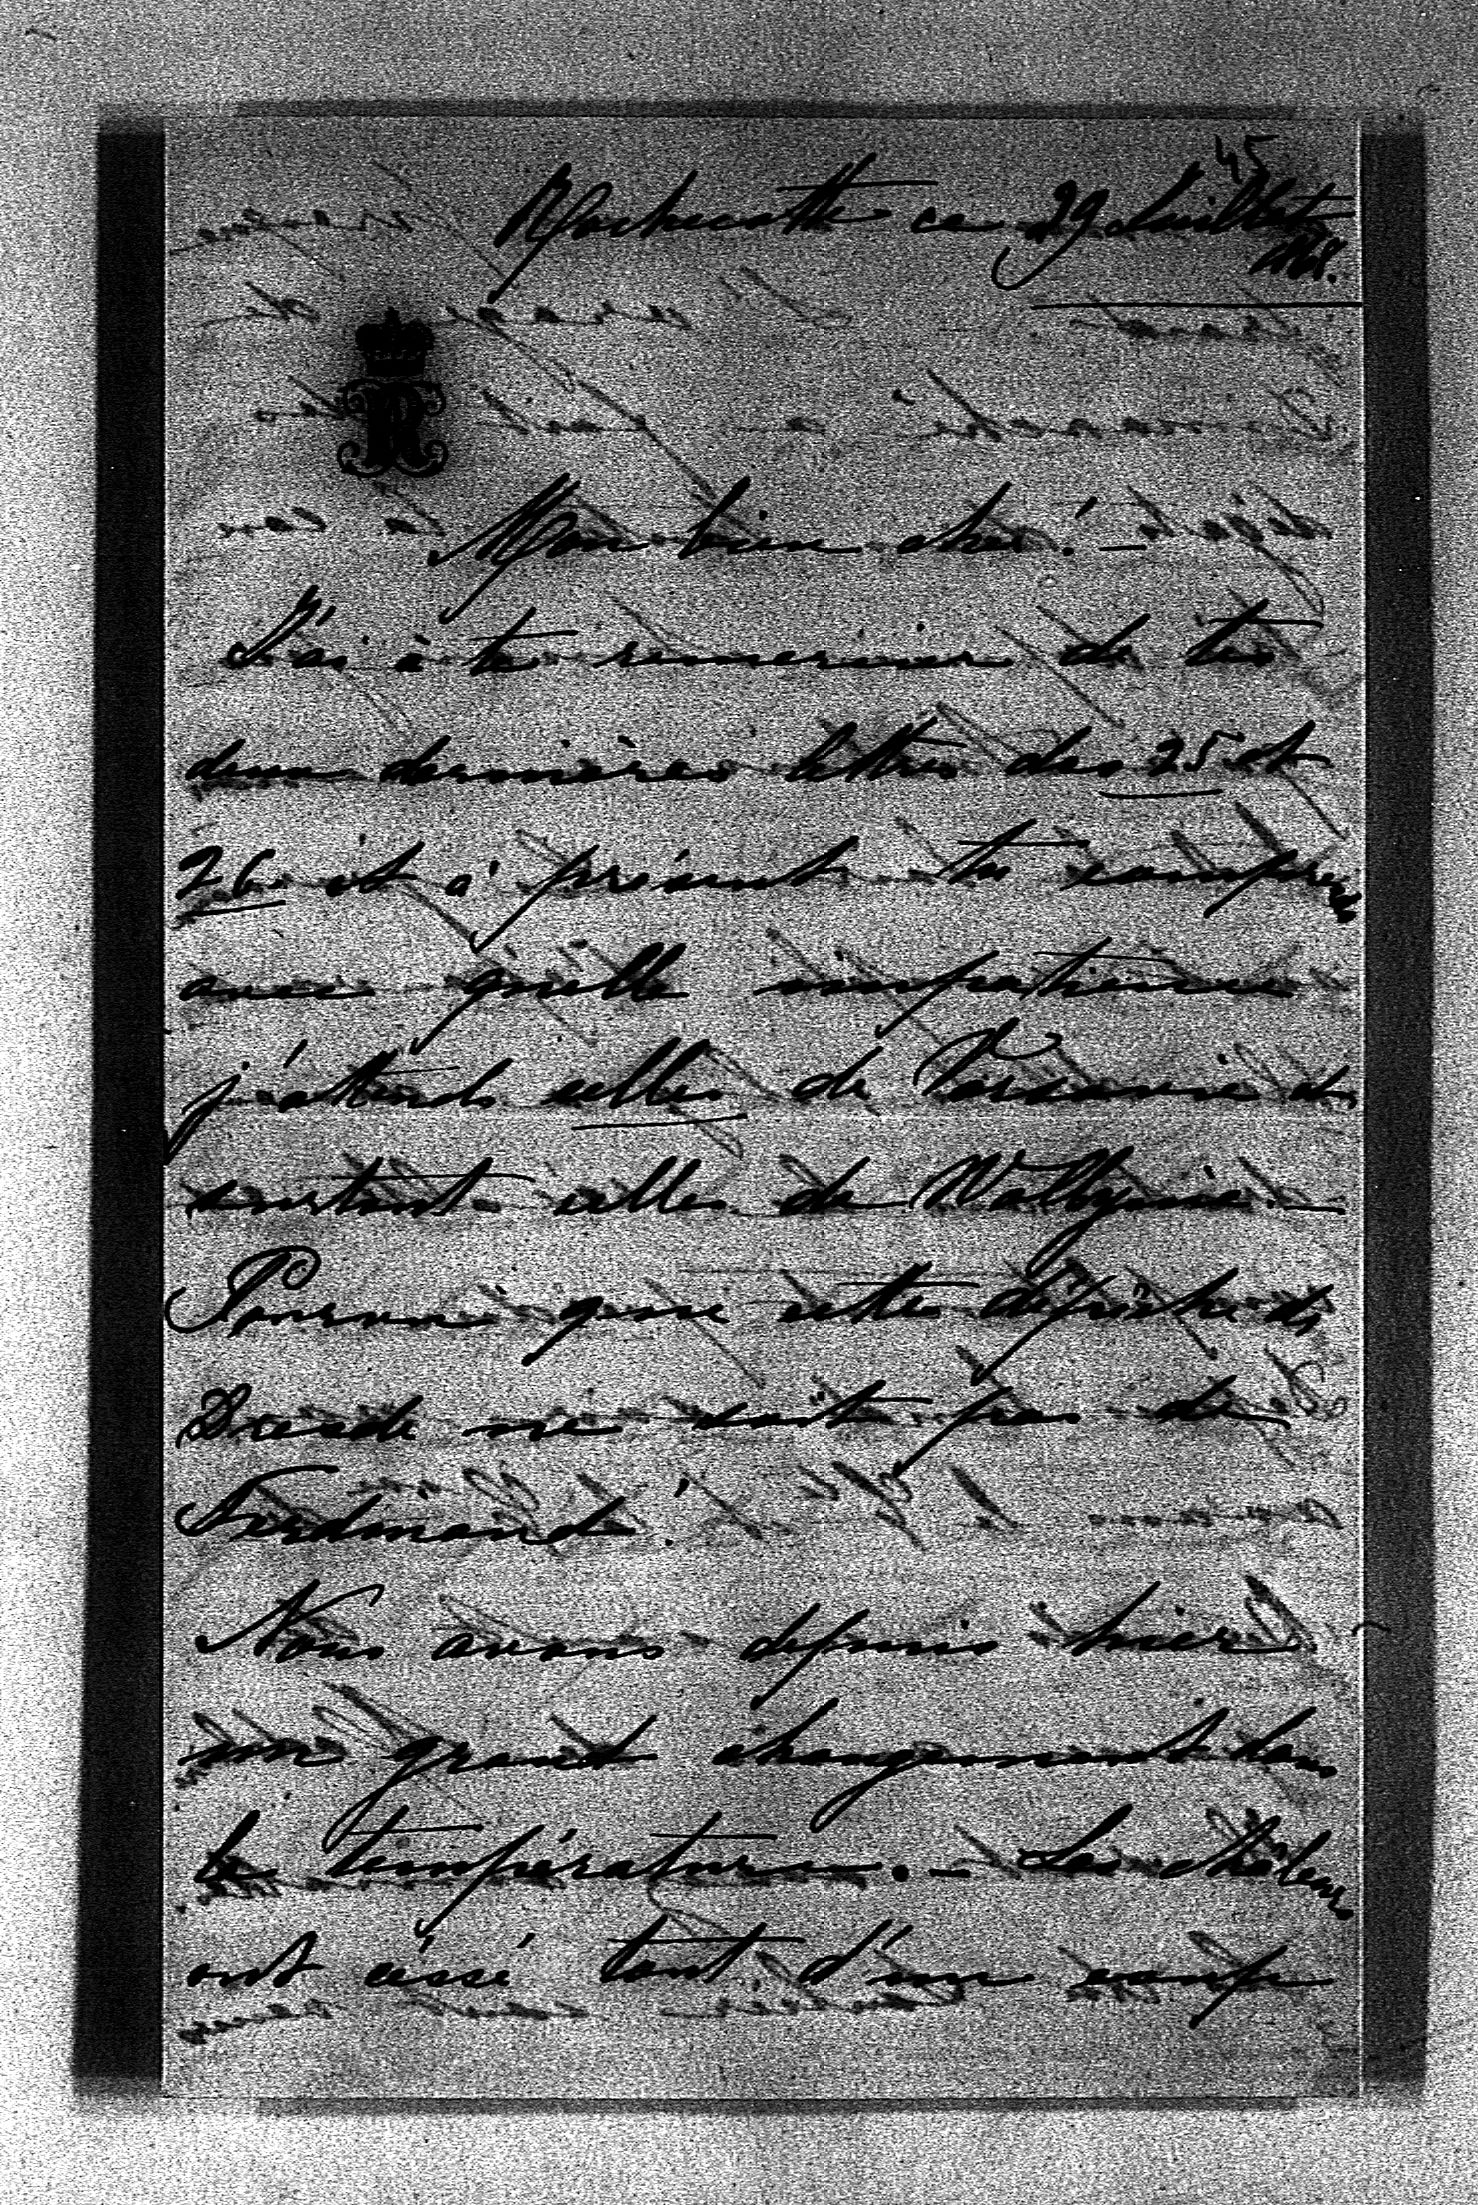 45
Rochecotte ce 29 Juillet
R
Mon bien cher! —
J'ai à te remercier de tes
deux dernières lettres des 25 et
26 et à présent tu comprends
avec quelle impatience
j'attends celles de Varsovie et
surtout celles de Wolhynie. —
Pourvu que cette dépêche de
Dresde ne soit pas de
Ferdinand!
Nous avons depuis hier
un grand changement dans
la température. — Les chaleurs
ont céssé tout d'un coup